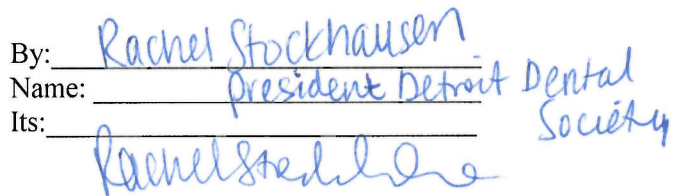 By: Rachel Stockhausen
Name: President Detroit Dental
Society
Its:
Rachel Stockhausen